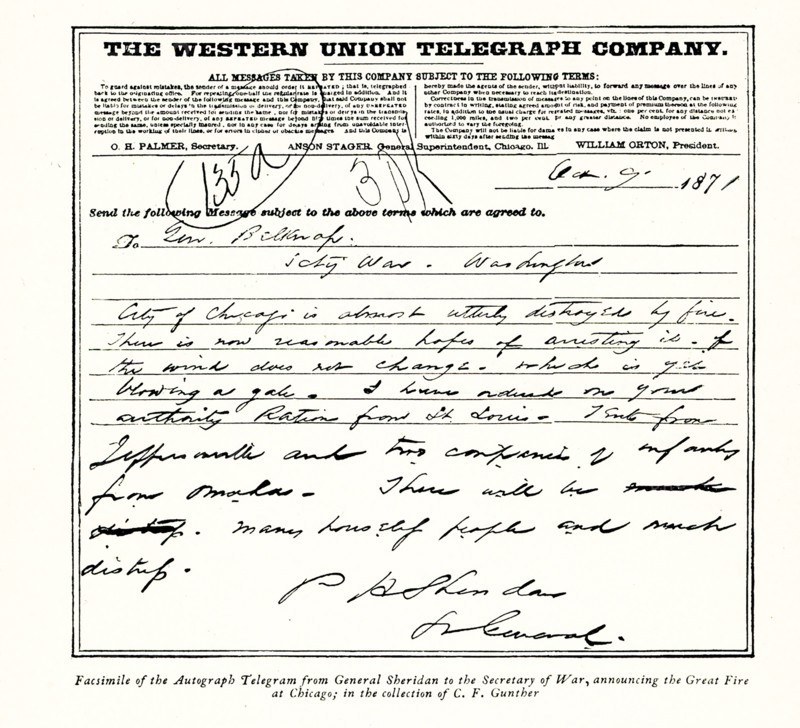 THE WESTERN UNION TELEGRAPH COMPANY.
ALL MESSAGES TAKEN BY THIS COMPANY SUBJECT TO THE FOLLOWING TERMS:
To guard against mistakes, the sender of a message should order it REPEATED; that is, telegraphed
back to the originating office. For repeating, one-half the regular rate is charged in addition. And it
is agreed between the sender of the following message and this Company, that said Company shall not
be liable for mistakes or delays in the transmission or delivery, or for non-delivery, of any UNREPEATED
message beyond the amount received for sending the same; nor for mistakes or delays in the transmis-
sion or delivery, or for non-delivery, of any REPEATED message beyond fifty times the sum received for
sending the same, unless specially insured, nor in any case for delays arising from unavoidable inter-
ruption in the working of their lines, or for errors in cipher or obscure messages. And this Company is
hereby made the agent of the sender, without liability, to forward any message over the lines of any
other Company when necessary to reach its destination.
Correctness in the transmission of messages to any point on the lines of this Company, can be INSURED
by contract in writing, stating agreed amount of risk, and payment of premium thereon at the following
rates, in addition to the usual charge for repeated messages, viz: one per cent. for any distance not ex-
ceeding 1,000 miles, and two per cent. for any greater distance. No employee of the Company is
authorized to vary the foregoing.
The Company will not be liable for damages in any case where the claim is not presented in writing
within sixty days after sending the message
O. H. PALMER, Secretary. ANSON STAGER, General Superintendent, Chicago, Ill WILLIAM ORTON, President.
135 a
Oct. 9. 1871
Send the following Message subject to the above terms which are agreed to.
To Gen. Belknap.
Secty War. Washington
City of Chicago is almost utterly destroyed by fire.
There is now reasonable hopes of arresting it. If
the wind does not change. which is yet
blowing a gale. I have ordered on your
authority Ration from St. Louis. Tents from
Jeffersonville and two companies of infantry
from Omaha. There will be
. many houseless people and much
distress.
P H Sheridan
Lt General.
Facsimile of the Autograph Telegram from General Sheridan to the Secretary of War, announcing the Great Fire
at Chicago; in the collection of C. F. Gunther